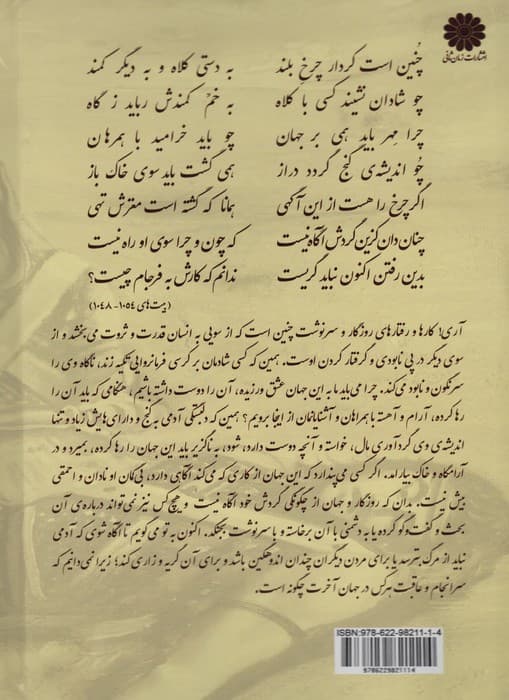 انتشارات زمان‌شانی
چُنین است کردار چرخِ بلند به دستی کلاه و به دیگر کمند
چو شادان نشیند کسی با کلاه به خَمِّ کمندش رباید ز گاه
چرا مِهر باید همی بر جهان چو باید خرامید با همرهان
چُو اندیشه‌ی گنج گردد دراز همی گشت باید سوی خاک باز
اگر چرخ را هست از این آگهی همانا که گشته است مغزش تهی
چنان دان کزین گردش آگاه نیست که چون و چرا سوی او راه نیست
بدین رفتن اکنون نباید گریست ندانم که کارش به فرجام چیست؟
(بیت‌های ۱۰۵۴-۱۰۴۸)
آری! کارها و رفتارهای روزگار و سرنوشت چنین است که از سویی به انسان قدرت و ثروت می‌بخشد و از
سوی دیگر در پی نابودی و گرفتار کردن اوست. همین که کسی شادمان بر کرسی فرمانروایی تکیه زند، ناگاه وی را
سرنگون و نابود می‌کند. چرا می‌باید ما به این جهان عشق ورزیده، آن را دوست داشته باشیم، هنگامی که باید آن را
رها کرده، آرام و آهسته با همراهان و آشنایانمان از اینجا برویم؟ همین که دلبستگی آدمی به گنج و دارای‌هایش زیاد و تنها
اندیشه‌ی وی گردآوری مال، خواسته و آنچه دوست دارد، شود، به ناگزیر باید این جهان را رها کرده، بمیرد و در
آرامگاه و خاک بیارامد. اگر کسی می‌پندارد که این جهان از کاری که می‌کند آگاهی دارد، بی‌گمان او نادان و احمقی
بیش نیست. بدان که روزگار و جهان از چگونگی گردش خود آگاه نیست و هیچ‌کس نیز نمی‌تواند درباره‌ی آن
بحث و گفت‌وگو کرده یا به دشمنی با آن برخاسته و با سرنوشت بجنگد. اکنون به تو می‌گویم تا آگاه شوی که آدمی
نباید از مرگ بترسد یا برای مردن دیگران چندان اندوهگین باشد و برای آن گریه و زاری کند؛ زیرا نمی‌دانیم که
سرانجام و عاقبت هرکس در جهان آخرت چگونه است.
ISBN:978-622-98211-1-4
9786229821114